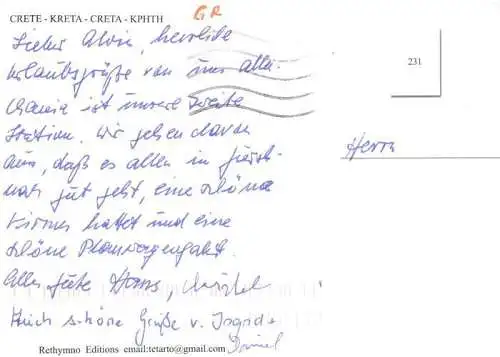 CRETE - KRETA - CRETA - ΚΡΗΤΗ
GR
231
Lieber Alois, herzliche
Urlaubsgrüße von uns allen.
Chania ist unsere zweite
Station. Wir gehen davon
aus, daß es allen in
gut geht, eine schöne
hattet und eine
schöne Planwagenfahrt.
Alles Gute Hans,
Auch schöne Grüße v. Ingrid
Herrn
Rethymno Editions email:tetarto@gmail.com